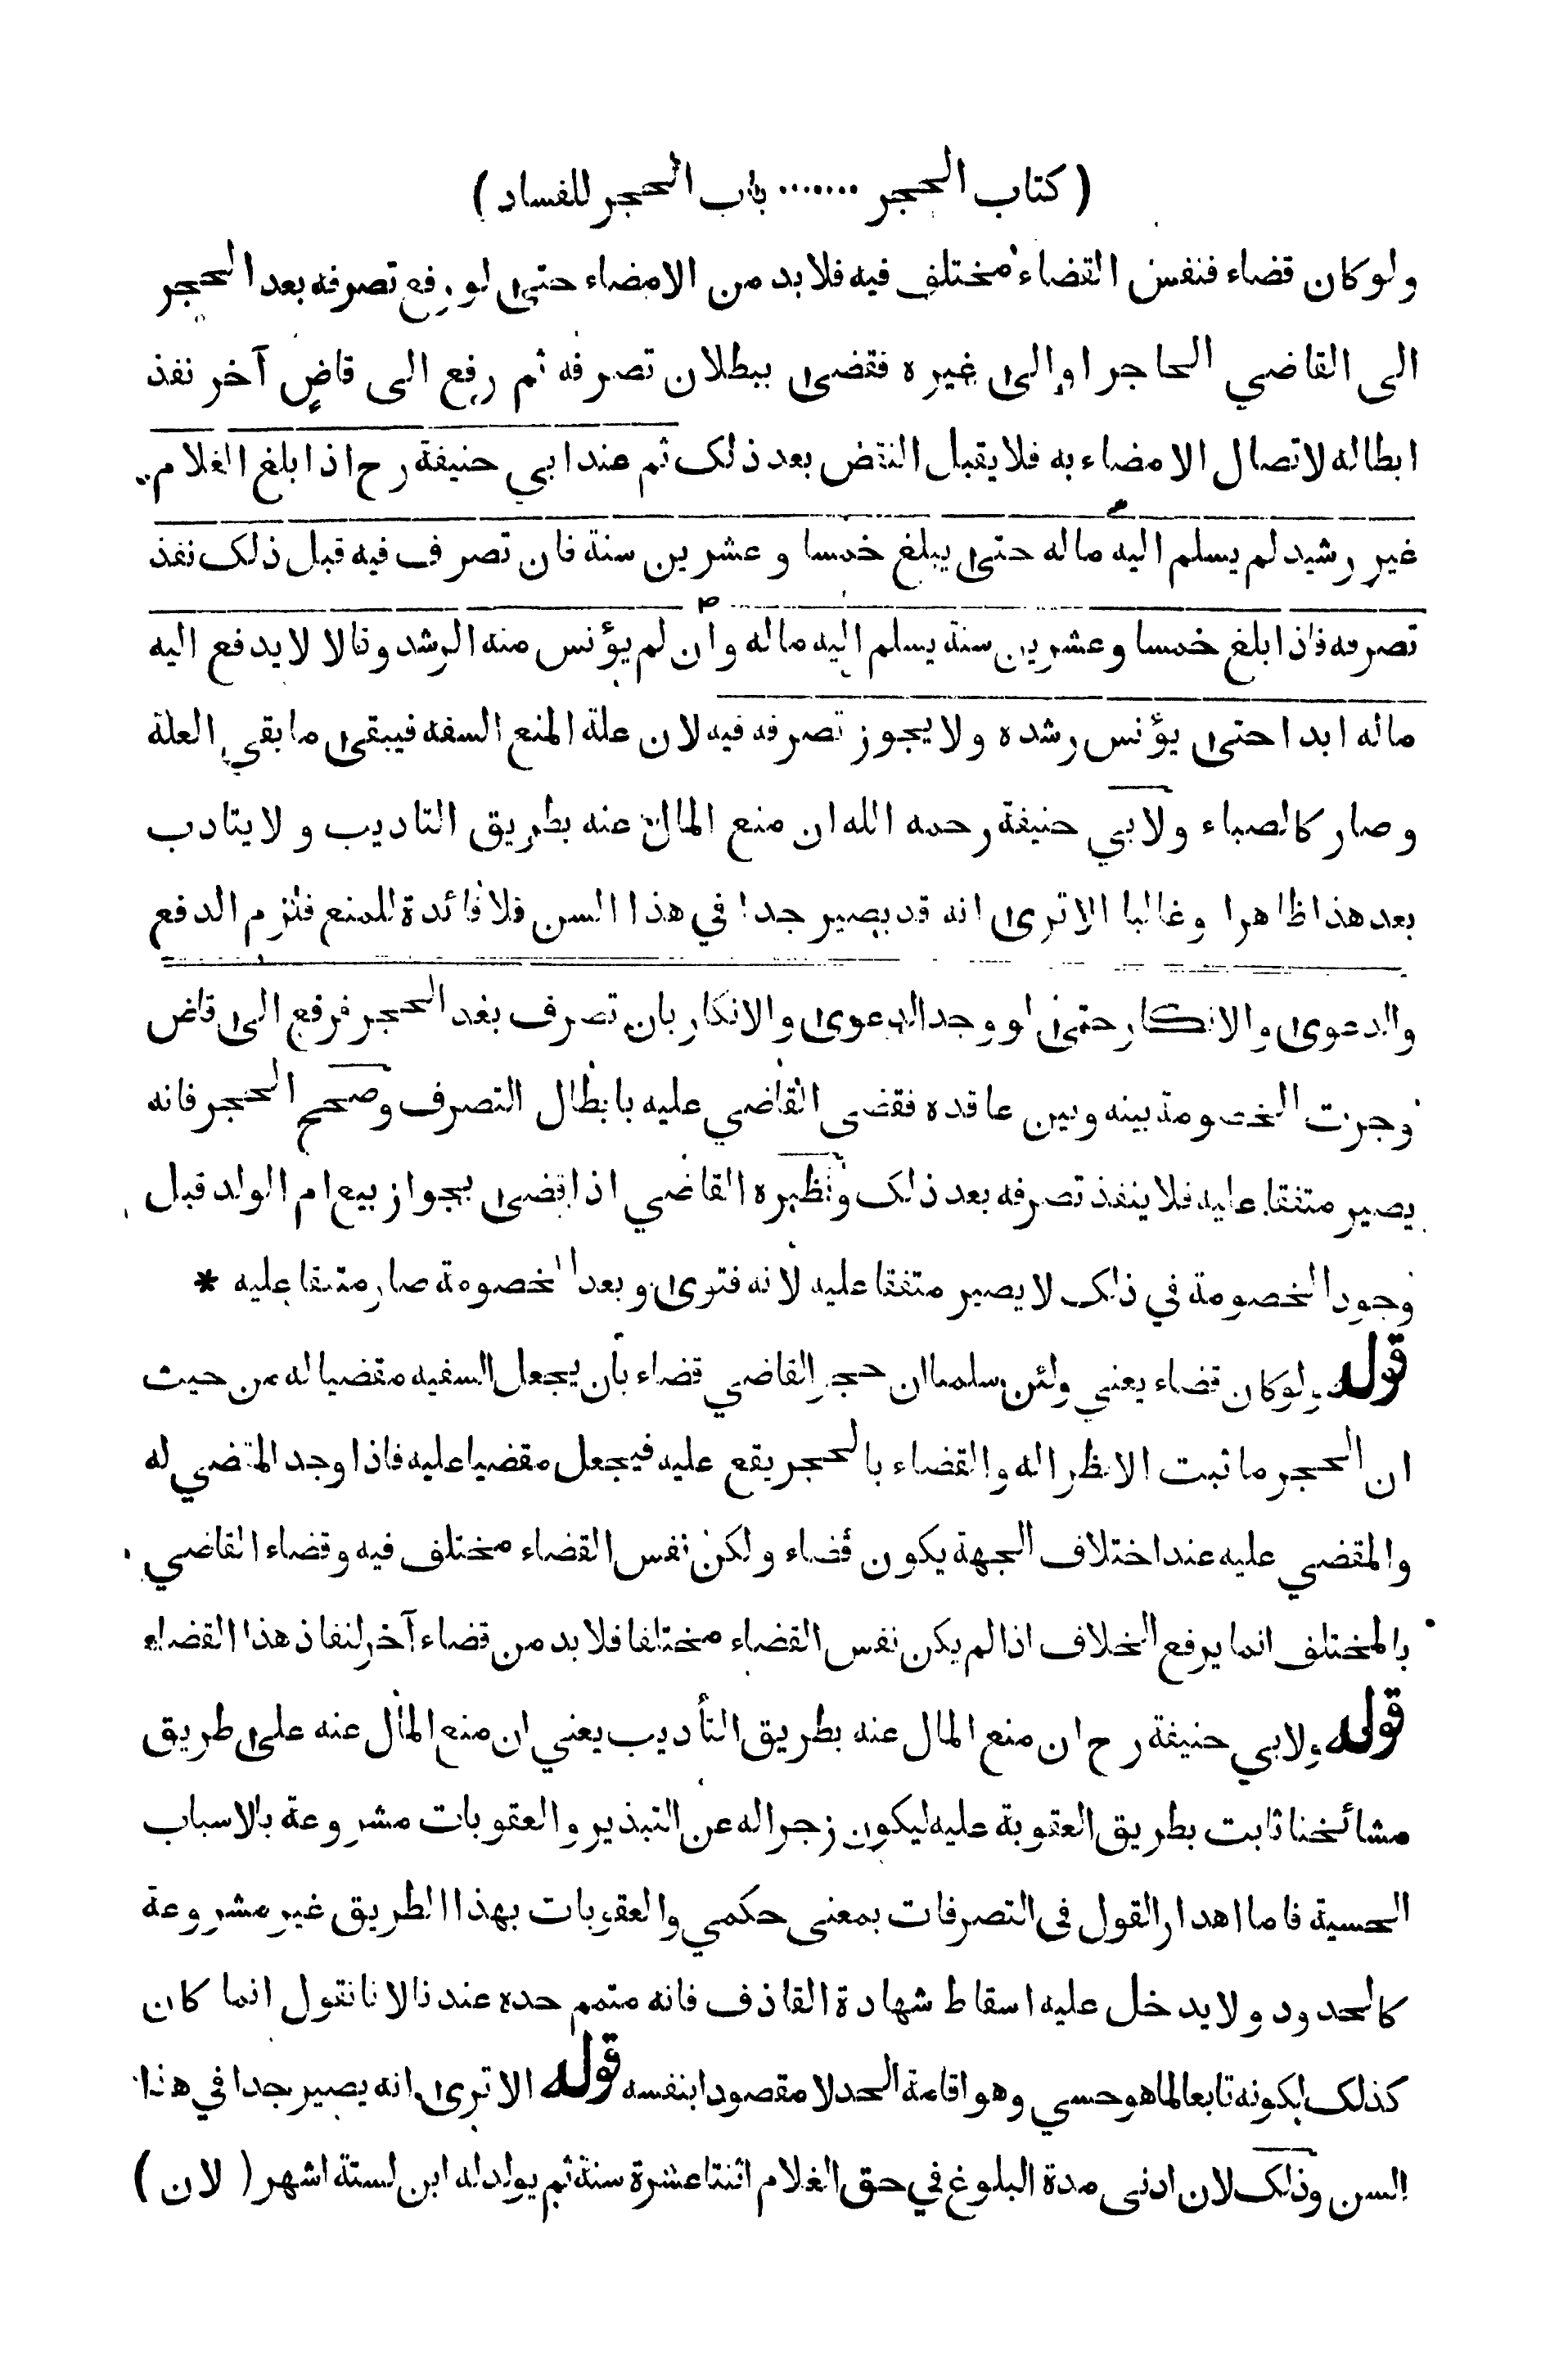 ( كتاب الحجر ....... باب الحجر للفساد )
ولو كان قضاء فنفس القضاء مختلف فيه فلا بد من الامضاء حتى لو رفع تصرفه بعد الحجر
الى القاضي الحاجر او الى غيره فقضى ببطلان تصرفه ثم رفع الى قاضٍ آخر نفذ
ابطاله لاتصال الامضاء به فلا يقبل النقض بعد ذلك ثم عند ابي حنيفة رح اذا بلغ الغلام
غير رشيد لم يسلم اليه ماله حتى يبلغ خمسا وعشرين سنة فان تصرف فيه قبل ذلك نفذ
تصرفه فاذا بلغ خمسا وعشرين سنة يسلم اليه ماله وان لم يؤنس منه الرشد وقالا لا يدفع اليه
ماله ابدا حتى يؤنس رشده ولا يجوز تصرفه فيه لان علة المنع السفه فيبقى ما بقي العلة
وصار كالصباء ولابي حنيفة رحمه الله ان منع المال عنه بطريق التاديب ولا يتادب
بعد هذا ظاهرا وغالبا الا ترى انه قد يصير جدا في هذا السن فلا فائدة للمنع فلزم الدفع
والدعوى والانكار حتى لو وجد الدعوى والانكار بان تصرف بعد الحجر فرفع الى قاض
وجرت الخصومة بينه وبين عاقده فقضى القاضي عليه بابطال التصرف وصحح الحجر فانه
يصير متفقا عليه فلا ينفذ تصرفه بعد ذلك ونظيره القاضي اذا قضى بجواز بيع ام الولد قبل
وجود الخصومة في ذلك لا يصير متفقا عليه لانه فتوى وبعد الخصومة صار متفقا عليه *
قوله ولو كان قضاء يعني ولئن سلمنا ان حجر القاضي قضاء بأن يجعل السفيه مقضيا له من حيث
ان الحجر ما ثبت الا نظرا له والقضاء بالحجر يقع عليه فيجعل مقضيا عليه فاذا وجد المقضي له
والمقضي عليه عند اختلاف الجهة يكون قضاء ولكن نفس القضاء مختلف فيه وقضاء القاضي
بالمختلف انما يرفع الخلاف اذا لم يكن نفس القضاء مختلفا فلا بد من قضاء آخر لنفاذ هذا القضاء
قوله ولابي حنيفة رح ان منع المال عنه بطريق التأديب يعني ان منع المال عنه على طريق
مشائخنا ثابت بطريق العقوبة عليه ليكون زجرا له عن التبذير والعقوبات مشروعة بالاسباب
الحسية فاما اهدار القول في التصرفات بمعنى حكمي والعقوبات بهذا الطريق غير مشروعة
كالحدود ولا يدخل عليه اسقاط شهادة القاذف فانه متمم حده عندنا لانا نقول انما كان
كذلك لكونه تابعا لما هو حسي وهو اقامة الحد لا مقصودا بنفسه قوله الا ترى انه يصير جدا في هذا
السن وذلك لان ادنى مدة البلوغ في حق الغلام اثنتا عشرة سنة ثم يولد له ابن لستة اشهر ( لان )